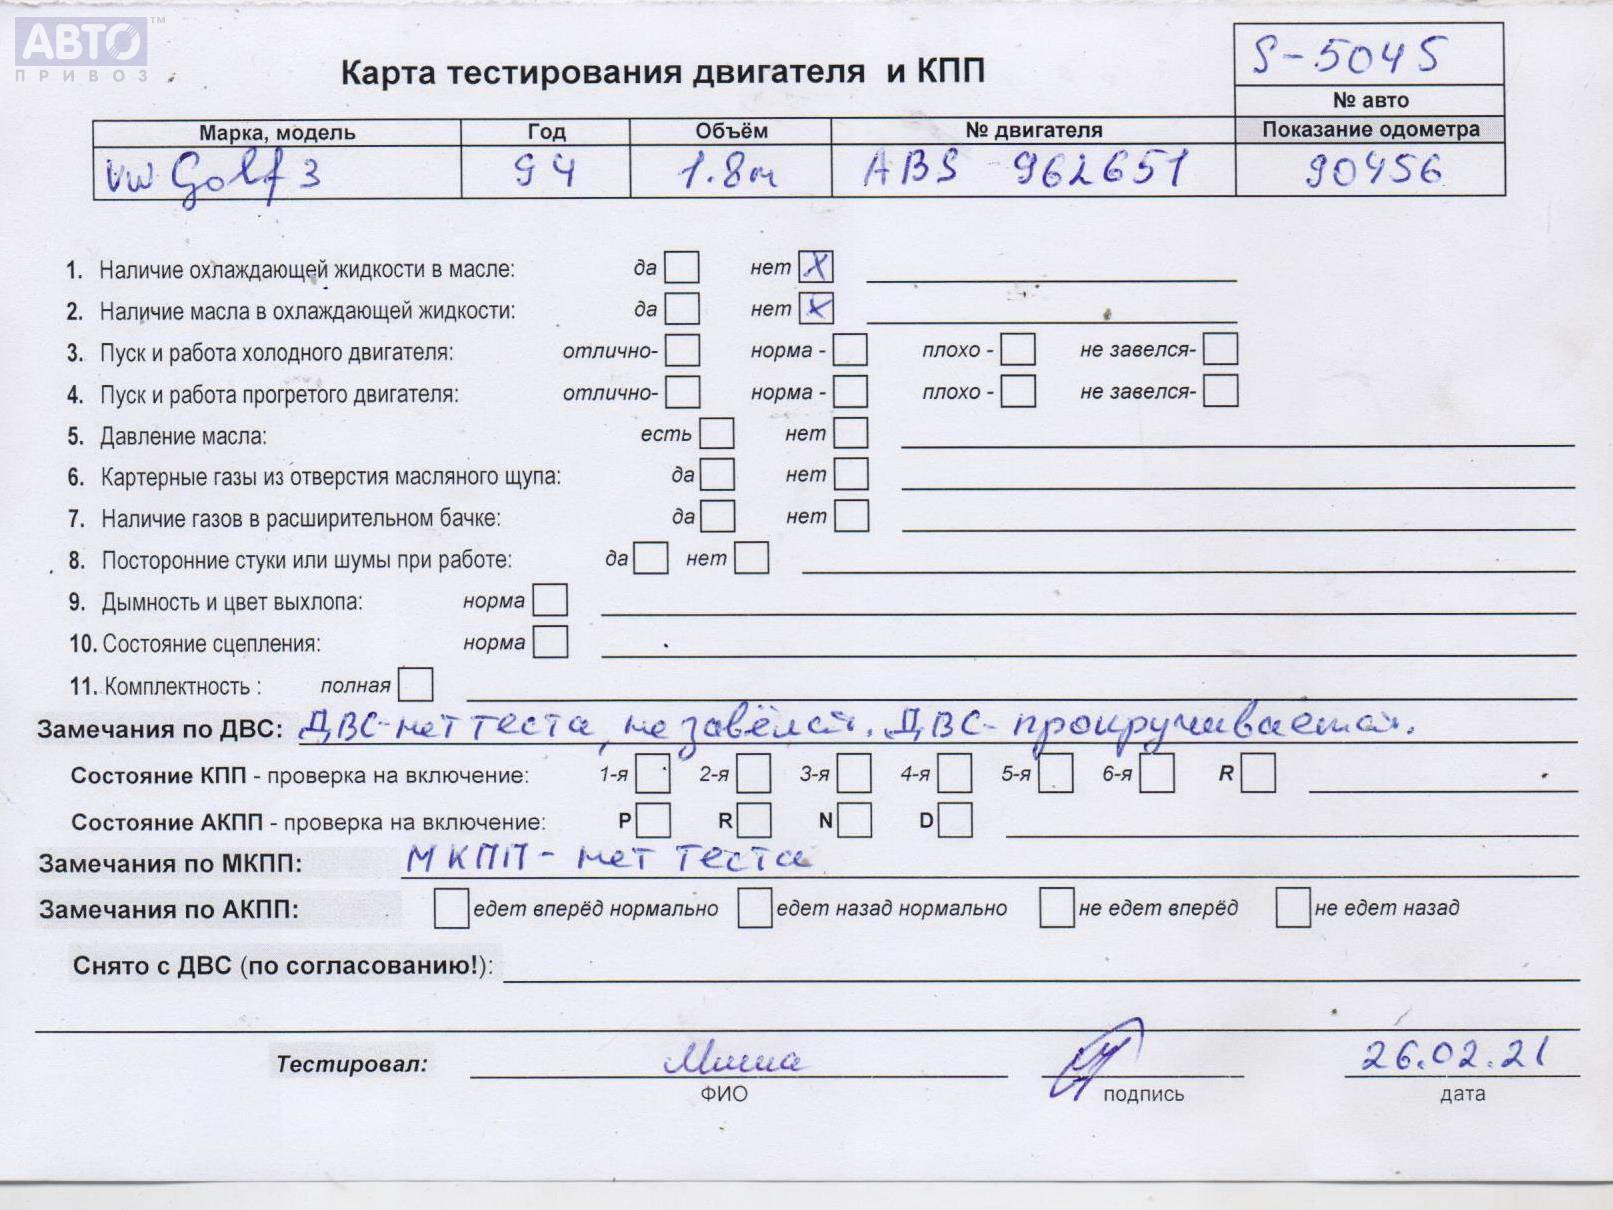 АВТО™
ПРИВОЗ
S-5045
Карта тестирования двигателя и КПП
№ авто
Марка, модель Год Объём № двигателя Показание одометра
VW Golf 3 94 1.8м ABS 962651 90456
1. Наличие охлаждающей жидкости в масле: да нет X
2. Наличие масла в охлаждающей жидкости: да нет X
3. Пуск и работа холодного двигателя: отлично- норма - плохо - не завелся-
4. Пуск и работа прогретого двигателя: отлично- норма - плохо - не завелся-
5. Давление масла: есть нет
6. Картерные газы из отверстия масляного щупа: да нет
7. Наличие газов в расширительном бачке: да нет
8. Посторонние стуки или шумы при работе: да нет
9. Дымность и цвет выхлопа: норма
10. Состояние сцепления: норма
11. Комплектность : полная
Замечания по ДВС: ДВС-нет теста, не завёлся. ДВС- прокручивается.
Состояние КПП - проверка на включение: 1-я 2-я 3-я 4-я 5-я 6-я R
Состояние АКПП - проверка на включение: P R N D
Замечания по МКПП: МКПП - нет теста
Замечания по АКПП: едет вперёд нормально едет назад нормально не едет вперёд не едет назад
Снято с ДВС (по согласованию!):
Тестировал: Миша 26.02.21
ФИО подпись дата